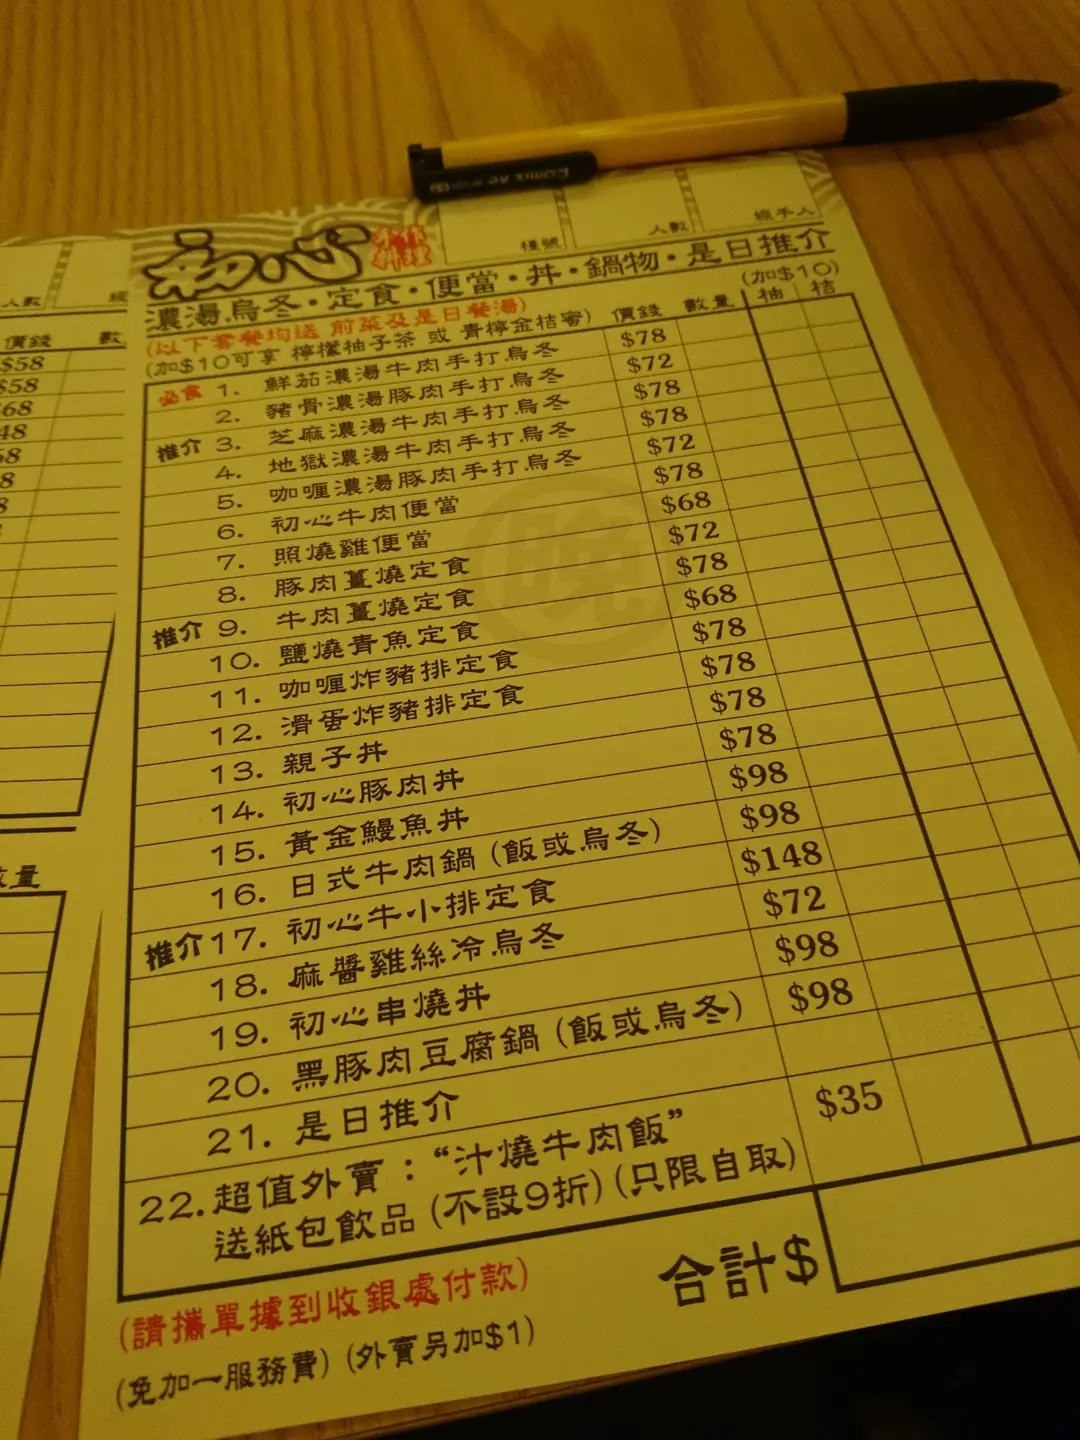 檯號 人數 經手人
初心
濃湯烏冬・定食・便當・丼・鍋物・是日推介
(以下套餐均送 前菜及是日餐湯)
(加$10可享 檸檬柚子茶 或 青檸金桔蜜) 價錢 數量 (加$10) 柚 桔
必食 1. 鮮茄濃湯牛肉手打烏冬 $78
2. 豬骨濃湯豚肉手打烏冬 $72
推介 3. 芝麻濃湯牛肉手打烏冬 $78
4. 地獄濃湯牛肉手打烏冬 $78
5. 咖喱濃湯豚肉手打烏冬 $72
6. 初心牛肉便當 $78
7. 照燒雞便當 $68
8. 豚肉薑燒定食 $72
推介 9. 牛肉薑燒定食 $78
10. 鹽燒青魚定食 $68
11. 咖喱炸豬排定食 $78
12. 滑蛋炸豬排定食 $78
13. 親子丼 $78
14. 初心豚肉丼 $78
15. 黃金鰻魚丼 $98
16. 日式牛肉鍋 (飯或烏冬) $98
推介 17. 初心牛小排定食 $148
18. 麻醬雞絲冷烏冬 $72
19. 初心串燒丼 $98
20. 黑豚肉豆腐鍋 (飯或烏冬) $98
21. 是日推介
22. 超值外賣：“汁燒牛肉飯” $35
送紙包飲品 (不設9折) (只限自取)
合計$
(請攜單據到收銀處付款)
(免加一服務費) (外賣另加$1)
晚
人數
價錢 數
$58
$58
68
48
數量